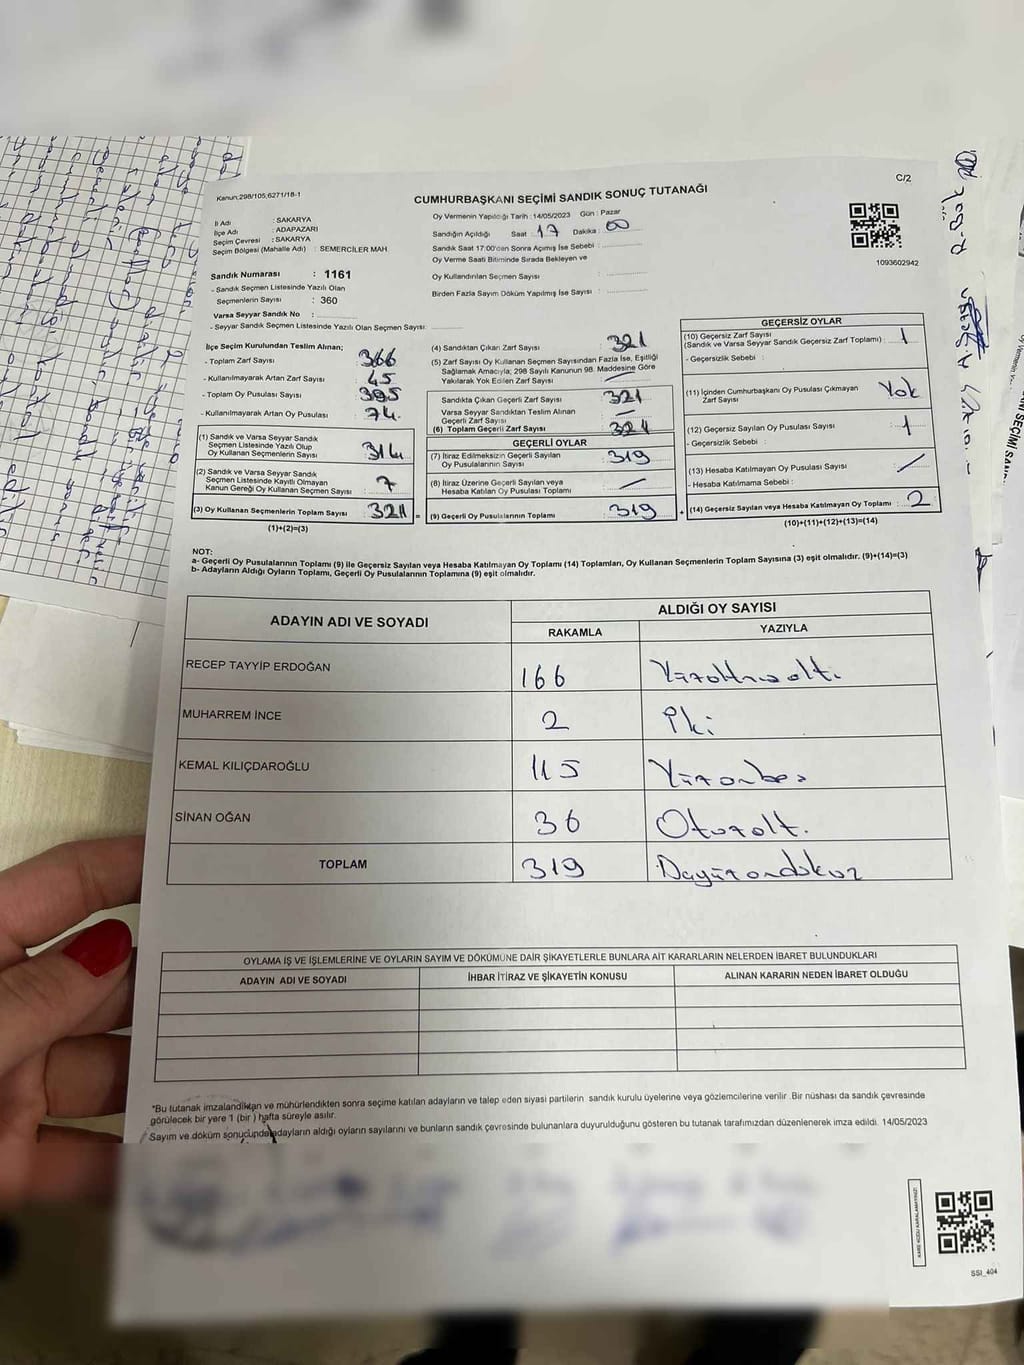 Kanun:298/105,6271/18-1
C/2
CUMHURBAŞKANI SEÇİMİ SANDIK SONUÇ TUTANAĞI
İl Adı : SAKARYA
İlçe Adı : ADAPAZARI
Seçim Çevresi : SAKARYA
Seçim Bölgesi (Mahalle Adı) : SEMERCİLER MAH.
Sandık Numarası : 1161
- Sandık Seçmen Listesinde Yazılı Olan
Seçmenlerin Sayısı : 360
Varsa Seyyar Sandık No :
- Seyyar Sandık Seçmen Listesinde Yazılı Olan Seçmen Sayısı:
Oy Vermenin Yapıldığı Tarih : 14/05/2023 Gün : Pazar
Sandığın Açıldığı Saat : 17 Dakika : 00
Sandık Saat 17:00'dan Sonra Açımış İse Sebebi :
Oy Verme Saati Bitiminde Sırada Bekleyen ve
Oy Kullandırılan Seçmen Sayısı :
Birden Fazla Sayım Döküm Yapılmış İse Sayısı :
1093602942
İlçe Seçim Kurulundan Teslim Alınan;
- Toplam Zarf Sayısı : 366
- Kullanılmayarak Artan Zarf Sayısı : 45
- Toplam Oy Pusulası Sayısı : 395
- Kullanılmayarak Artan Oy Pusulası : 74
(1) Sandık ve Varsa Seyyar Sandık
Seçmen Listesinde Yazılı Olup
Oy Kullanan Seçmenlerin Sayısı : 314
(2) Sandık ve Varsa Seyyar Sandık
Seçmen Listesinde Kayıtlı Olmayan
Kanun Gereği Oy Kullanan Seçmen Sayısı : 7
(3) Oy Kullanan Seçmenlerin Toplam Sayısı : 321
(1)+(2)=(3)
(4) Sandıktan Çıkan Zarf Sayısı : 321
(5) Zarf Sayısı Oy Kullanan Seçmen Sayısından Fazla İse, Eşitliği
Sağlamak Amacıyla; 298 Sayılı Kanunun 98. Maddesine Göre
Yakılarak Yok Edilen Zarf Sayısı :
Sandıkta Çıkan Geçerli Zarf Sayısı : 321
Varsa Seyyar Sandıktan Teslim Alınan
Geçerli Zarf Sayısı : —
(6) Toplam Geçerli Zarf Sayısı : 321
GEÇERLİ OYLAR
(7) İtiraz Edilmeksizin Geçerli Sayılan
Oy Pusulalarının Sayısı : 319
(8) İtiraz Üzerine Geçerli Sayılan veya
Hesaba Katılan Oy Pusulası Toplamı : —
= (9) Geçerli Oy Pusulalarının Toplamı : 319
GEÇERSİZ OYLAR
(10) Geçersiz Zarf Sayısı
(Sandık ve Varsa Seyyar Sandık Geçersiz Zarf Toplamı) : 1
- Geçersizlik Sebebi :
(11) İçinden Cumhurbaşkanı Oy Pusulası Çıkmayan
Zarf Sayısı : Yok
(12) Geçersiz Sayılan Oy Pusulası Sayısı : 1
- Geçersizlik Sebebi :
(13) Hesaba Katılmayan Oy Pusulası Sayısı : /
- Hesaba Katılmama Sebebi :
+ (14) Geçersiz Sayılan veya Hesaba Katılmayan Oy Toplamı : 2
(10)+(11)+(12)+(13)=(14)
NOT:
a- Geçerli Oy Pusulalarının Toplamı (9) ile Geçersiz Sayılan veya Hesaba Katılmayan Oy Toplamı (14) Toplamları, Oy Kullanan Seçmenlerin Toplam Sayısına (3) eşit olmalıdır. (9)+(14)=(3)
b- Adayların Aldığı Oyların Toplamı, Geçerli Oy Pusulalarının Toplamına (9) eşit olmalıdır.
ADAYIN ADI VE SOYADI ALDIĞI OY SAYISI
RAKAMLA YAZIYLA
RECEP TAYYİP ERDOĞAN 166 Yüzaltmışaltı
MUHARREM İNCE 2 İki
KEMAL KILIÇDAROĞLU 115 Yüzonbeş
SİNAN OĞAN 36 Otuzaltı
TOPLAM 319 Üçyüzondokuz
OYLAMA İŞ VE İŞLEMLERİNE VE OYLARIN SAYIM VE DÖKÜMÜNE DAİR ŞİKAYETLERLE BUNLARA AİT KARARLARIN NELERDEN İBARET BULUNDUKLARI
ADAYIN ADI VE SOYADI İHBAR İTİRAZ VE ŞİKAYETİN KONUSU ALINAN KARARIN NEDEN İBARET OLDUĞU
*Bu tutanak imzalandıktan ve mühürlendikten sonra seçime katılan adayların ve talep eden siyasi partilerin sandık kurulu üyelerine veya gözlemcilerine verilir .Bir nüshası da sandık çevresinde
görülecek bir yere 1 (bir ) hafta süreyle asılır.
Sayım ve döküm sonucunda adayların aldığı oyların sayılarını ve bunların sandık çevresinde bulunanlara duyurulduğunu gösteren bu tutanak tarafımızdan düzenlenerek imza edildi. 14/05/2023
KARE KODU KARALAMAYINIZ!
SSI_404